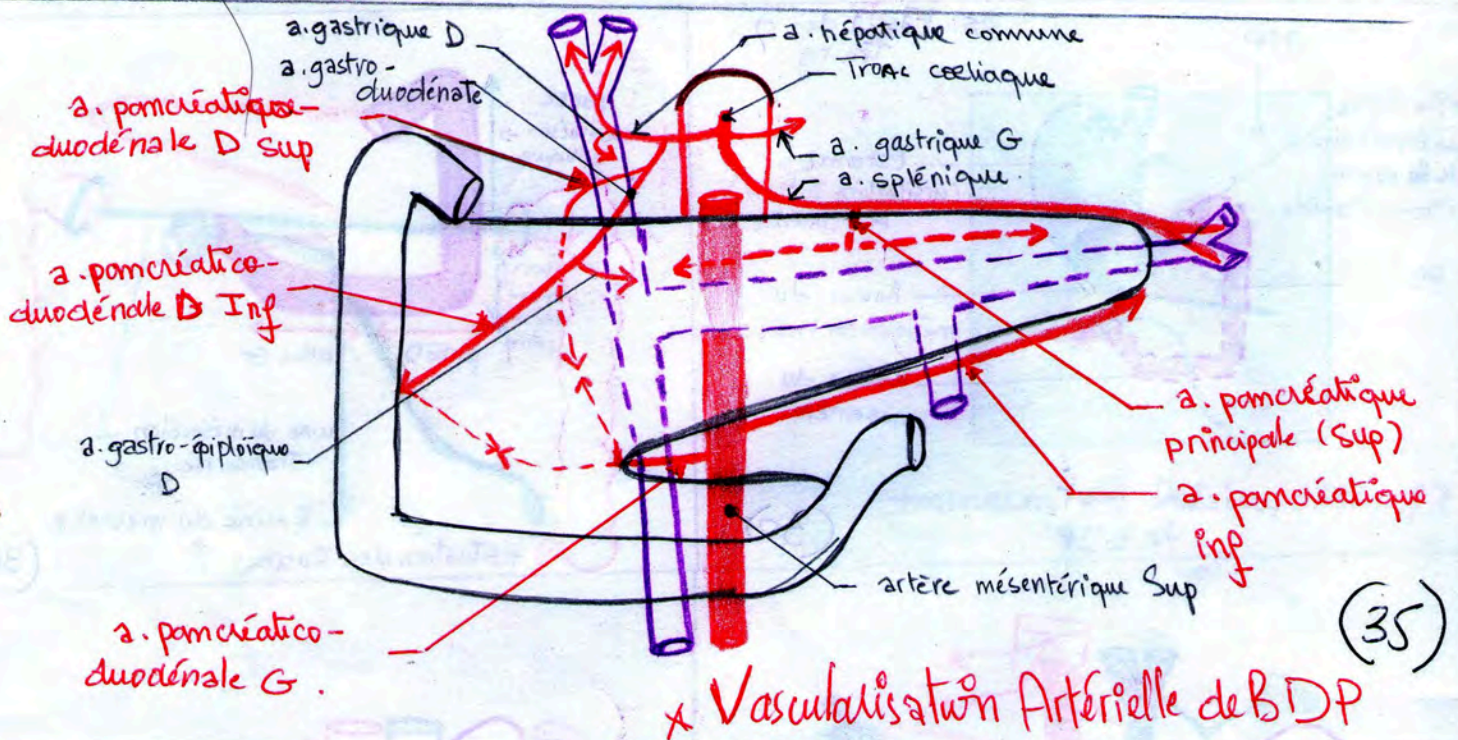 a.gastrique D
a.gastro-
duodénale
a. hépatique commune
Tronc coeliaque
a. pancréatique-
duodénale D Sup
a. gastrique G
a. splénique.
a. pancréatico-
duodénale D Inf
a.gastro-épiploïque
D
a. pancréatique
principale (Sup)
a. pancréatique
inf
artère mésentérique Sup
a. pancréatico-
duodénale G.
(35)
x Vascularisation Artérielle de BDP